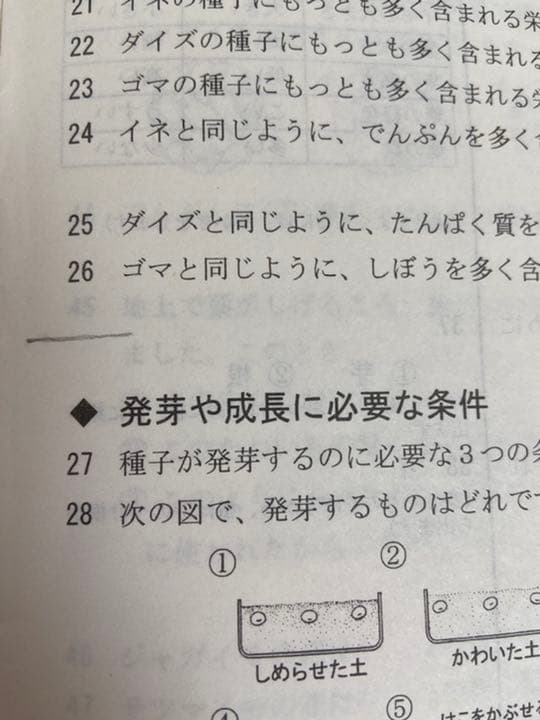 21 イネの種子にもっとも多く含まれる栄
22 ダイズの種子にもっとも多く含まれる
23 ゴマの種子にもっとも多く含まれる栄
24 イネと同じように、でんぷんを多く
25 ダイズと同じように、たんぱく質を
26 ゴマと同じように、しぼうを多く含
◆ 発芽や成長に必要な条件
27 種子が発芽するのに必要な3つの条
28 次の図で、発芽するものはどれです
① ②
しめらせた土 かわいた土
④ ⑤ はこをかぶせる